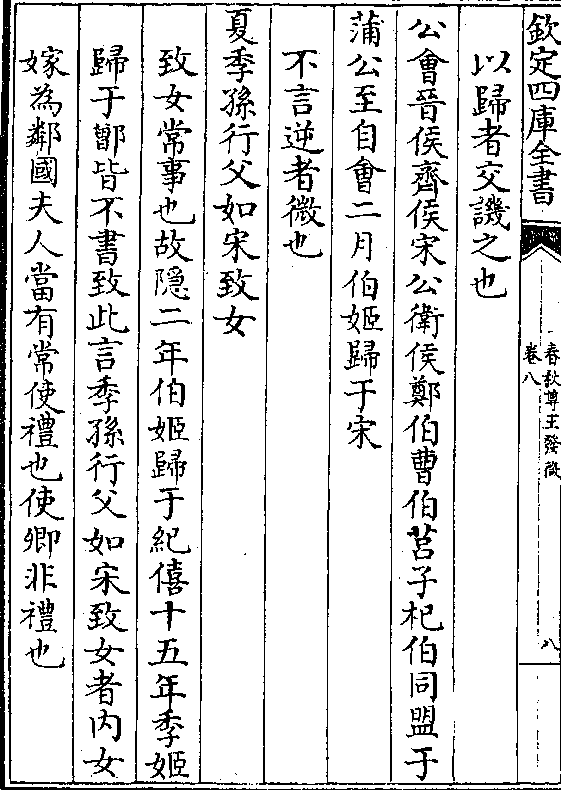 欽定四庫全書
春秋尊王發微
卷八
八
以歸者交譏之也
公會晉侯齊侯宋公衛侯鄭伯曹伯莒子杞伯同盟于
蒲公至自會二月伯姬歸于宋
不言逆者微也
夏季孫行父如宋致女
致女常事也故隱二年伯姬歸于紀僖十五年季姬
歸于鄫皆不書致此言季孫行父如宋致女者内女
嫁為鄰國夫人當有常使禮也使卿非禮也